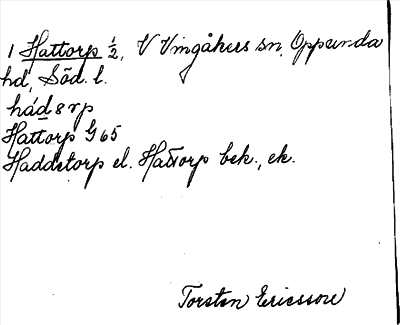 1 Hattorp ½, V Vingåkers sn, Oppunda
hd, Söd. l.
hád8rp
Hattorp G 65
Haddetorp el. Hattorp bek., ek.
Torsten Ericsson